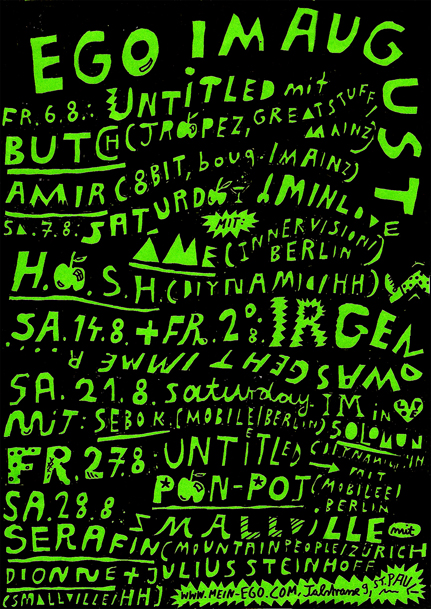 EGO IM AUGUST
FR. 6.8.: UNTITLED mit
BUTCH (JROOPEZ, GREATSTUFF/MAINZ)
AMIR (8BIT, boug./MAINZ)
SA. 7.8.: SATURDAY IMINLOVE
MIT:
ÂME (INNERVISION/BERLIN)
H.O.S.H. (DIYNAMIC/HH)
SA. 14.8. + FR. 20.8. IRGENDWAS GEHT IMMER
SA. 21.8. saturday. IM in
MIT: SEBO K. (MOBILE/BERLIN) SOLOMUN
FR. 27.8. UNTITLED
MIT
PAN-POT (MOBILEE/BERLIN)
SA. 28.8. SMALLVILLE mit
SERAFIN (MOUNTAINPEOPLE/ZÜRICH
DIONNE + JULIUS STEINHOFF
(SMALLVILLE/HH) WWW.MEIN-EGO.COM, Talstrasse 9, ST. PAULI